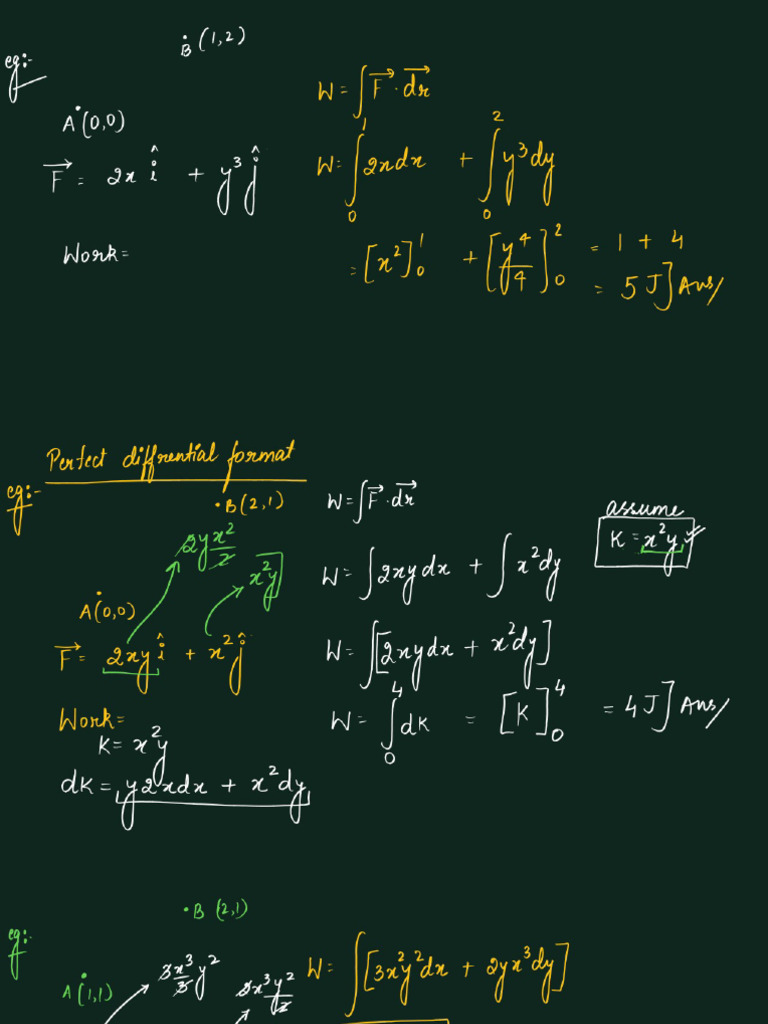 eg:-
·B (1,2)
A·(0,0)
F⃗ = 2x î + y³ ĵ
Work =
W = ∫ F⃗ · dr⃗
W = ∫₀¹ 2x dx + ∫₀² y³ dy
= [x²]₀¹ + [y⁴/4]₀² = 1 + 4
= 5 J] Ans/
Perfect diffrential format
eg:-
·B(2,1)
2y x²/2
x²y
A·(0,0)
F⃗ = 2xy î + x² ĵ
Work =
K = x²y
dK = y2xdx + x²dy
W = ∫ F⃗ · dr⃗
assume
K = x²y
W = ∫ 2xy dx + ∫ x² dy
W = ∫[2xydx + x²dy]
W = ∫₀⁴ dK = [K]₀⁴ = 4 J] Ans/
eg:-
·B (2,1)
A·(1,1)
3x³/3 y²
2x³y²/2
W = ∫[3x²y²dx + 2yx³dy]